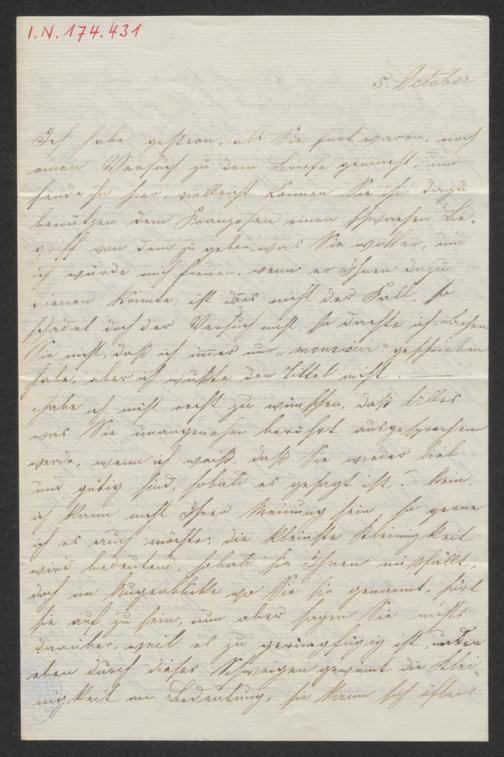 I.N. 174.431
5. October
Ich habe gestern, als Sie fort waren, noch
einen Versuch zu dem Briefe gemacht, und
sende ihn hier, vielleicht können Sie ihn dazu
benützen dem Franzosen einen schwachen Be-
griff von dem zu geben, was Sie wollen, und
ich würde mich freuen, wenn er Ihnen dazu
dienen könnte; ist dies nicht der Fall, so
schadet doch der Versuch nicht so dachte ich, lachen
Sie nicht, daß ich immer nur „monsieur" geschrieben
habe, aber ich wußte den Tittel nicht
habe ich nicht recht zu wünschen, daß Alles
was Sie unangenehm berührt ausgesprochen
werde, wenn ich weiß, daß Sie wieder lieb
und gütig sind, sobald es gesagt ist? Nein,
ich kann nicht Ihrer Meinung sein, so gerne
ich es auch möchte; die kleinste Kleinigkeit
wird bedeutend, sobald sie Ihnen mißfällt,
doch im Augenblicke wo Sie sie genannt, hört
sie auf zu sein, nun aber sagen Sie nichts
darüber, weil es zu geringfügig ist,
eben durch dieses Schweigen gewinnt die Klei-
nigkeit an Bedeutung, sie kann sich öfters